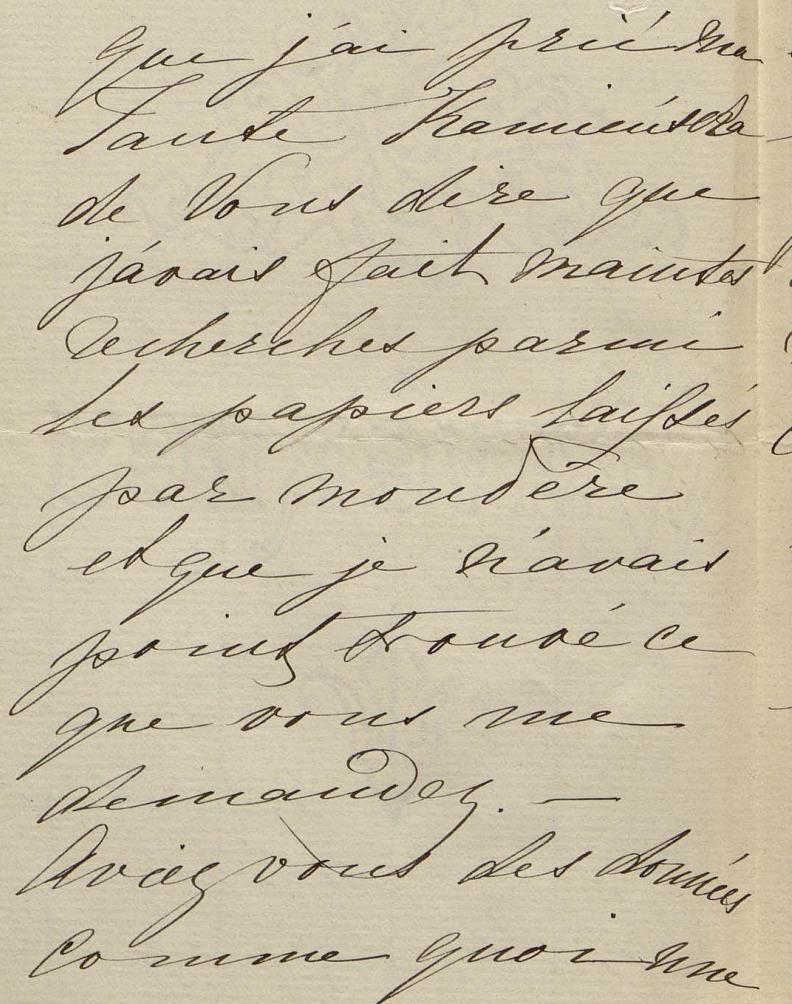 que j'ai prié ma
Tante Kamieńska
de Vous dire que
j'avais fait maintes
recherches parmi
les papiers laissés
par mon Père
et que je n'avais
point trouvé ce
que vous me
demandez. —
Aviez vous des données
comme quoi une